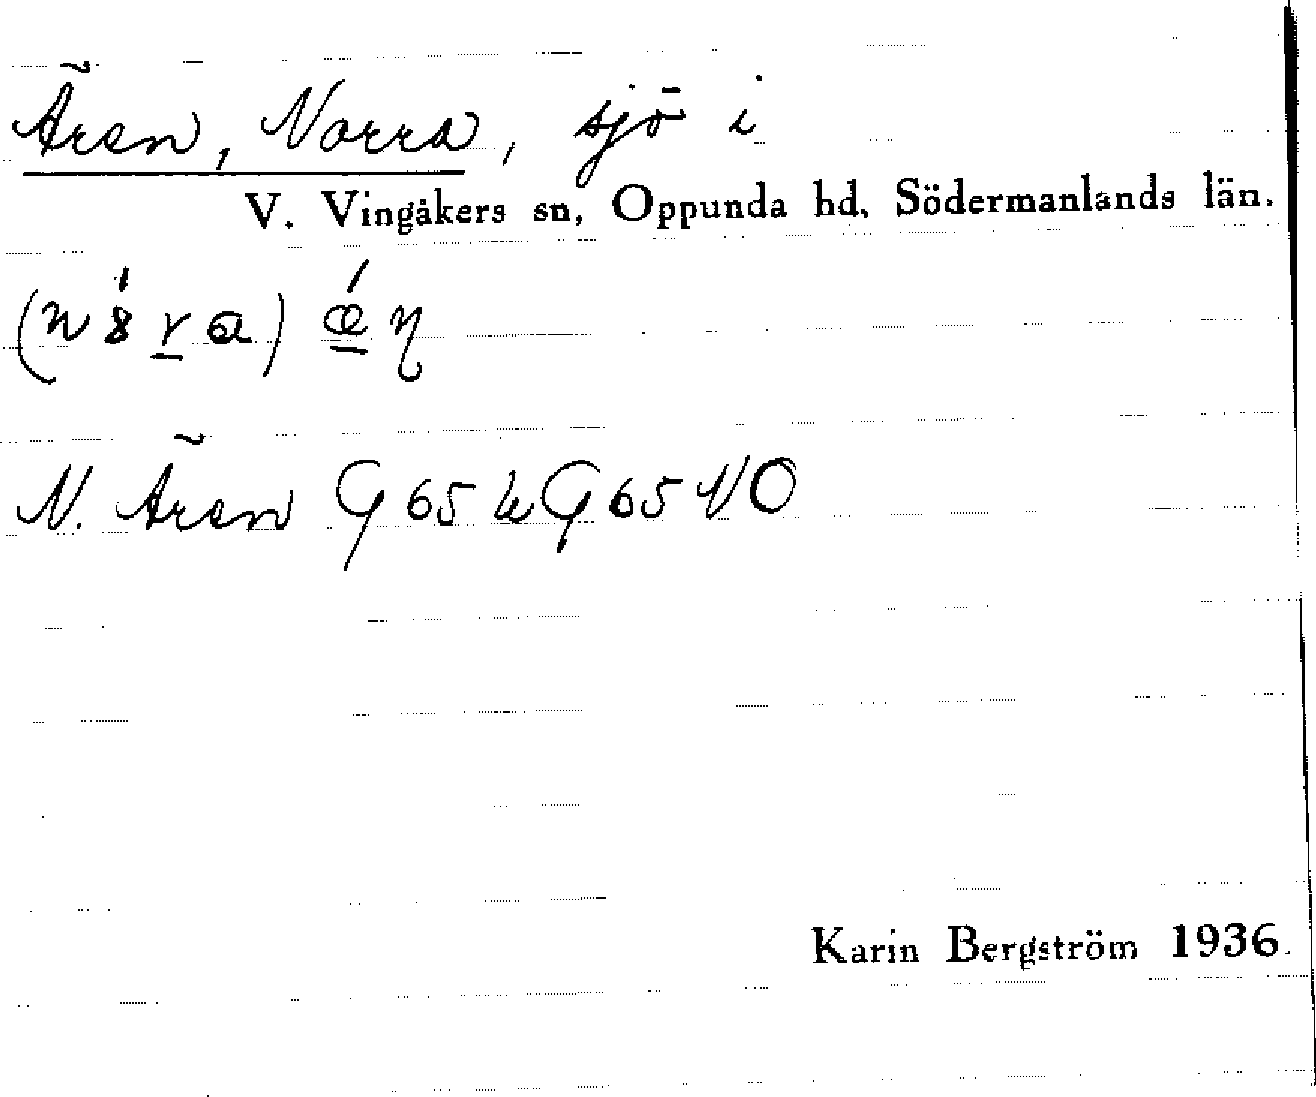 Ären, Norra, sjö i
V. Vingåkers sn, Oppunda hd, Södermanlands län.
N. Ären G 65 k G 65 NO
Karin Bergström 1936.